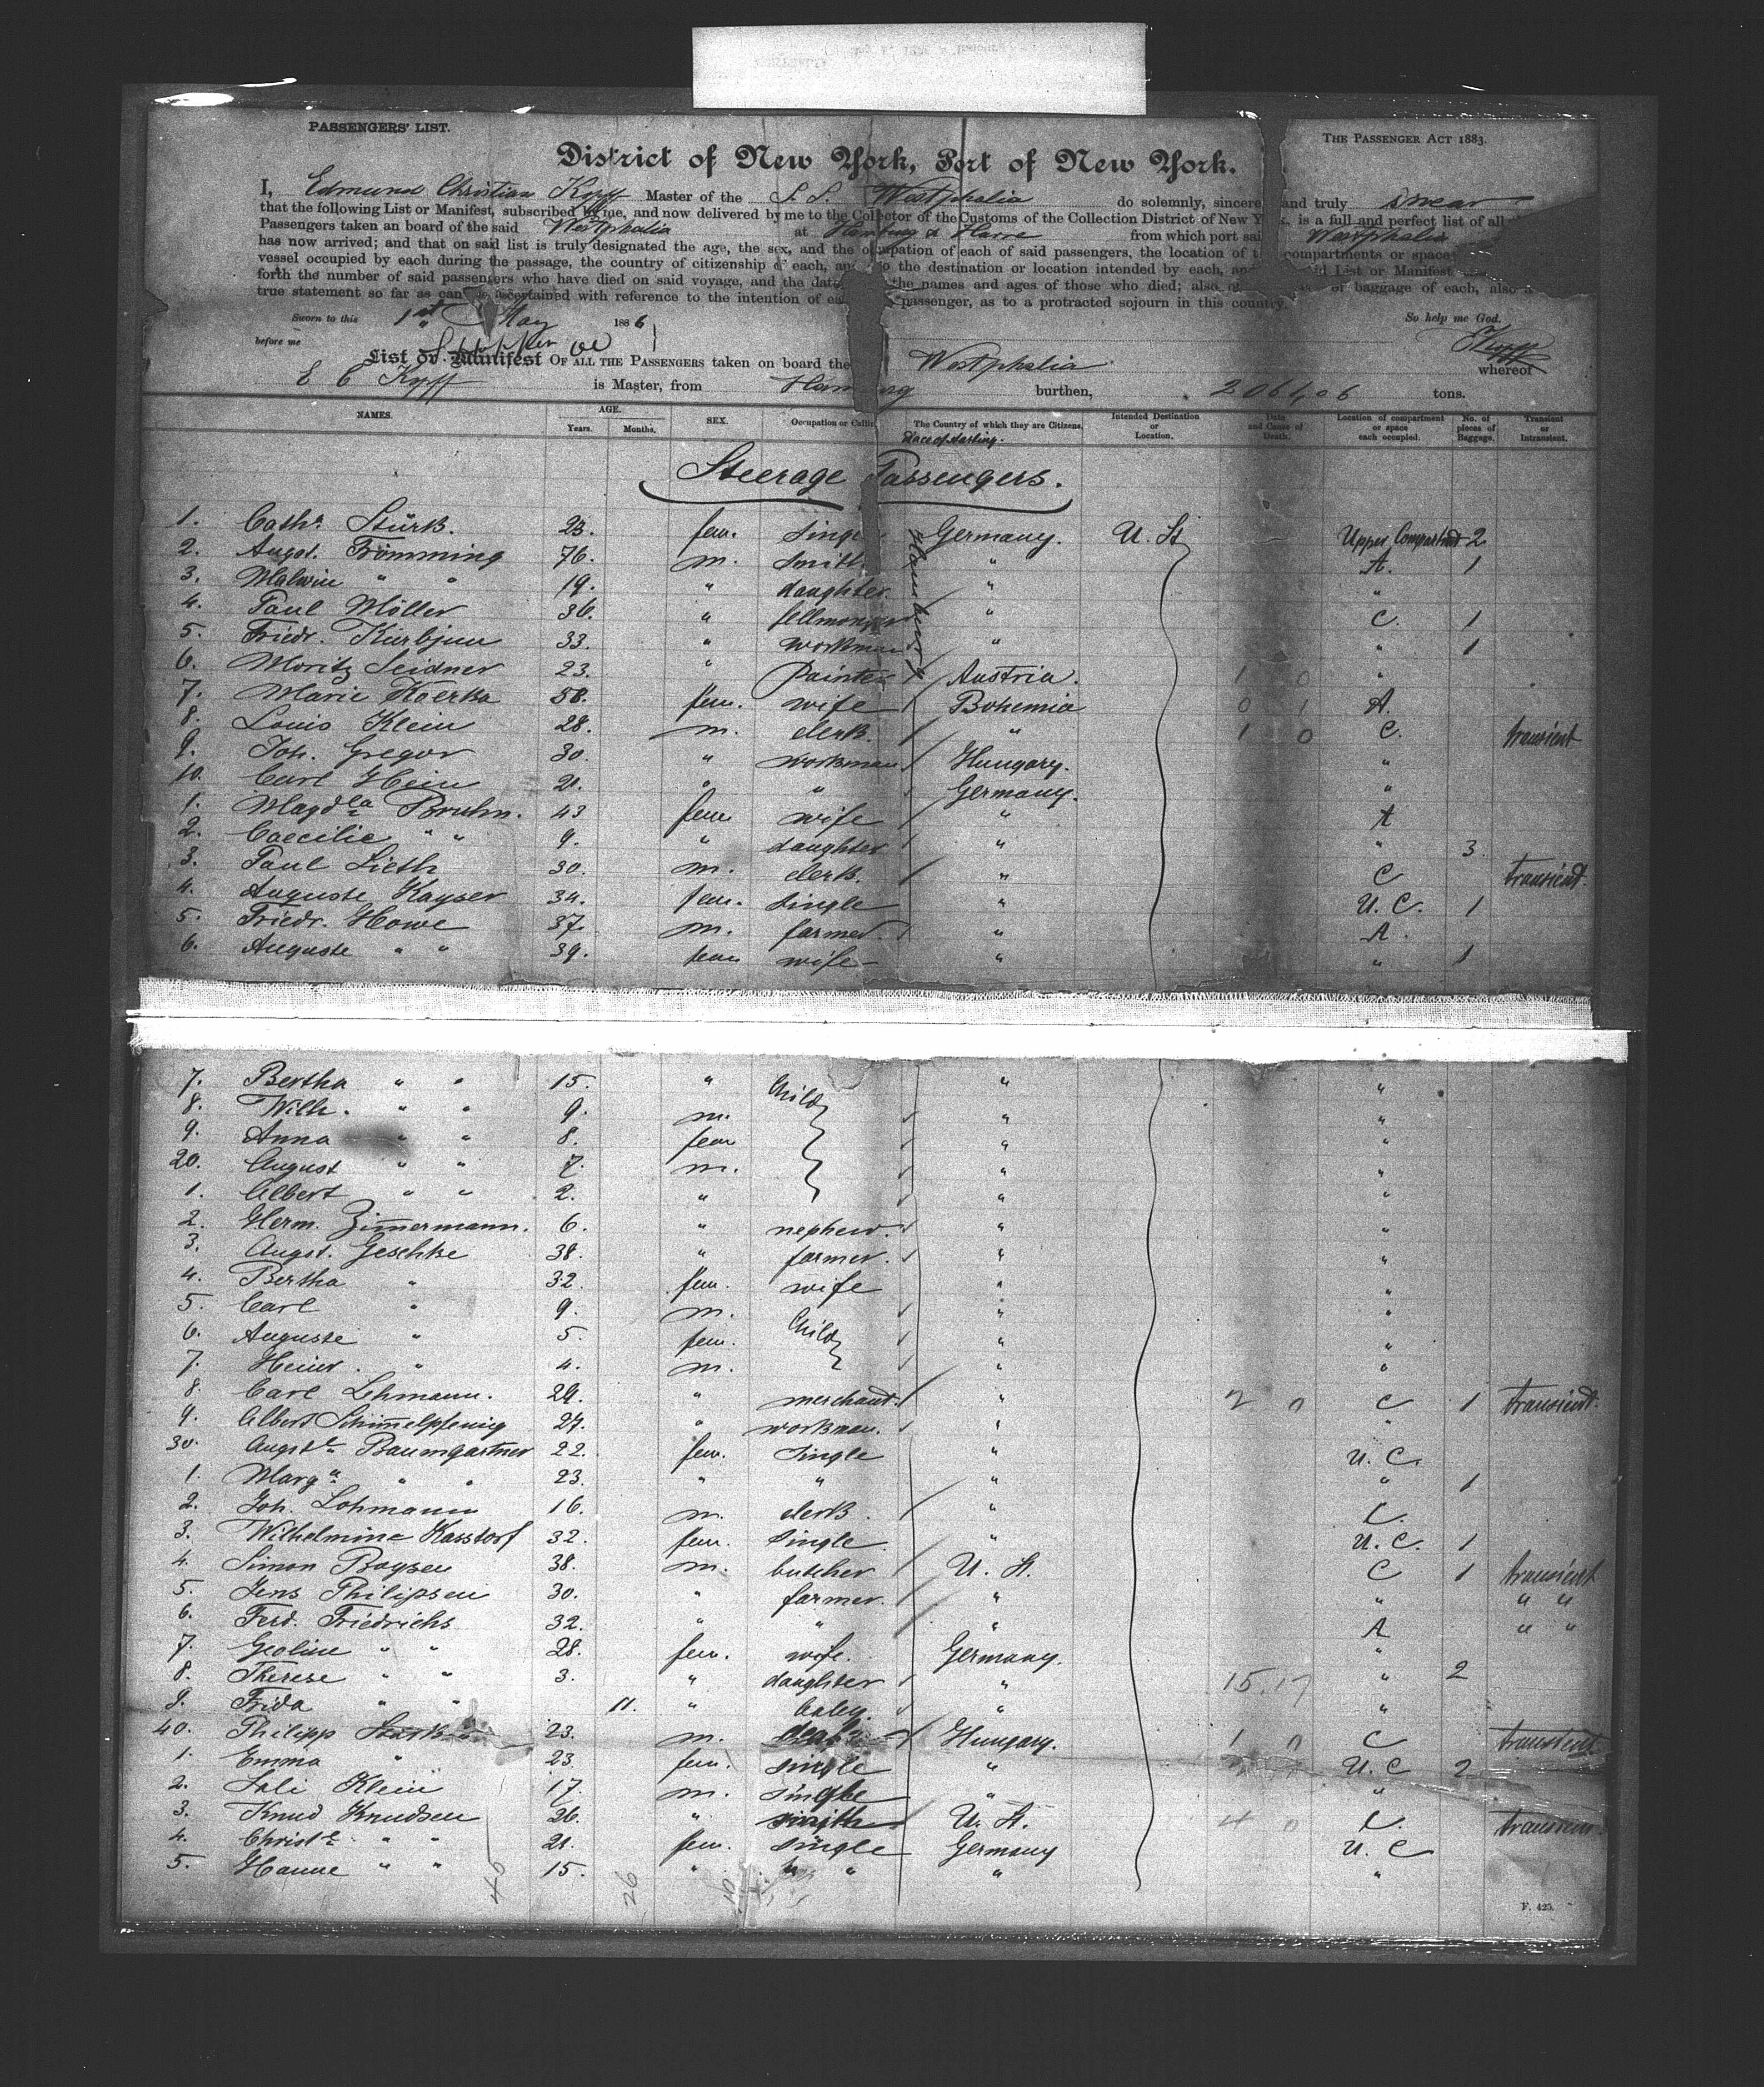 PASSENGERS' LIST.
THE PASSENGER ACT 1883.
District of New York, Port of New York.
I, Edmund Christian Kopff Master of the S. S. Westphalia do solemnly, sincere and truly swear
that the following List or Manifest, subscribed by me, and now delivered by me to the Collector of the Customs of the Collection District of New Y k. is a full and perfect list of all
Passengers taken on board of the said Westphalia at Hamburg & Havre from which port sai Westphalia
has now arrived; and that on said list is truly designated the age, the sex, and the occupation of each of said passengers, the location of t compartments or space
vessel occupied by each during the passage, the country of citizenship of each, an o the destination or location intended by each, and id List or Manifest
forth the number of said passengers who have died on said voyage, and the dat the names and ages of those who died; also, of baggage of each, also a
true statement so far as can be ascertained with reference to the intention of ea passenger, as to a protracted sojourn in this country.
Sworn to this 1st May 1886
So help me God.
before me
Kopff
List or Manifest OF ALL THE PASSENGERS taken on board the Westphalia whereof
E C Kopff is Master, from Hamburg burthen, tons.
NAMES. AGE. Years. Months. SEX. Occupation or Callin The Country of which they are Citizens. Intended Destination or Location. Date and Cause of Death. Location of compartment or space each occupied. No. of pieces of Baggage. Transient or Intransient.
Place of starting.
Steerage Passengers.
Hamburg
1. Cath. Stürk. 23. fem. Singl Germany. U. St Upper Compartmt 2
2. Augst. Frömming 76. m. Smith " A. 1
3. Malwin " " 19. " daughter " "
4. Paul Möller 36. " fellmonger " C. 1
5. Friedr. Kürbjun 33. " workman " " 1
6. Moritz Seidner 23. " Painter Austria. 1 0 "
7. Marie Koerka 58. fem. wife Bohemia 0 1 A.
8. Louis Klein 28. m. clerk. " 1 0 C. transient
9. Joh. Gregor 30. " workman Hungary. "
10. Carl Hein 21. " " Germany. "
1. Magdla Bruhn. 43 fem wife " A
2. Caecilie " " 9. " daughter " " 3.
3. Paul Lieth 30. m. clerk. " C transient.
4. Auguste Kayser 34. fem. single " U. C. 1
5. Friedr. Howe 37. m. farmer. " A.
6. Auguste " " 39. fem wife " " 1
7. Bertha " " 15. " Child " "
8. Wilh. " " 9. m. " "
9. Anna " " 8. fem " "
20. August " " 7. m. " "
1. Albert " " 2. " " "
2. Herm. Zimmermann. 6. " nephew. " "
3. Augst. Geschke 38. " farmer. " "
4. Bertha " 32. fem. wife " "
5. Carl " 9. m. Child " "
6. Auguste " 5. fem. " "
7. Heinr. " 4. m. " "
8. Carl Lehmann. 29. " merchant. " 2 0 C 1 transient.
9. Albert Schimmelpfenig 27. " workman. " "
30. Augste Baumgartner 22. fem. Single " U. C.
1. Marg. " " 23. " " " " 1
2. Joh. Lohmann 16. m. clerk. " C.
3. Wilhelmine Kasstorf 32. fem. Single. " U. C. 1
4. Simon Boysen 38. m. butcher U. St. C 1 transient
5. Jens Philipsen 30. " farmer. " " " "
6. Ferd. Friedrichs 32. " " " A " "
7. Geoline " " 28. fem. wife. Germany. "
8. Therese " " 3. " daughter " 15.17 " 2
9. Frida " " 11. " baby. " "
40. Philipp 23. m. Hungary. 1 0 C transient.
1. Emma " 23. fem. single " U. C 2
2. Sali Klein 17. m. single " "
3. Knud Knudsen 26. " smith U. St. 4 0 C. transient.
4. Christe " " 21. fem. single Germany U. C
5. Hanne " " 15. " " " "
46 26
F. 425.